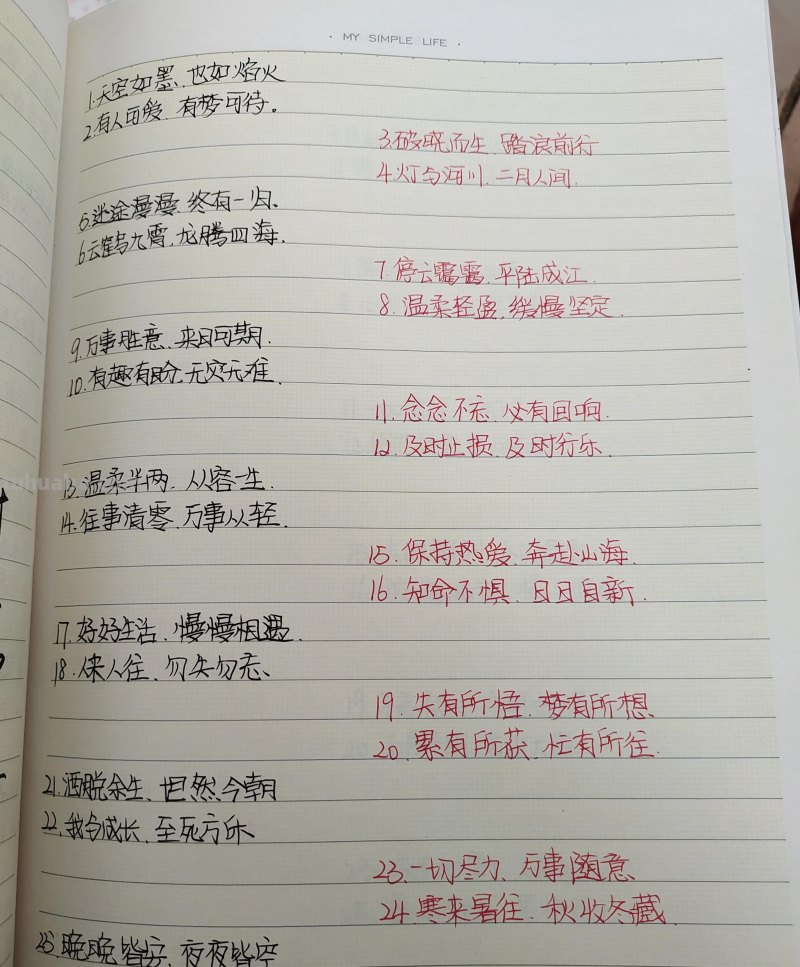 · MY SIMPLE LIFE ·
1.天空如墨、也如焰火
2.有人可爱、有梦可待。
3.破晓而生、踏浪前行
4.灯与河川、二月人间.
5.迷途漫漫、终有一归、
6云鹤九霄、龙腾四海.
7.停云霭霭、平陆成江.
8.温柔轻盈、缓慢坚定.
9.万事胜意、来日可期.
10.有趣有盼、无灾无难.
11.念念不忘、必有回响.
12.及时止损、及时行乐.
13.温柔半两、从容一生.
14.往事清零、万事从轻.
15.保持热爱、奔赴山海.
16.知命不惧、日日自新.
17.好好生活、慢慢相遇.
18.人来人往、勿失勿忘、
19.失有所悟、梦有所想、
20.累有所获、忙有所往.
21.洒脱余生、坦然今朝
22.我今成长、至死方休、
23.一切尽力、万事随意
24.寒来暑往、秋收冬藏.
25.晚晚皆安、夜夜皆空